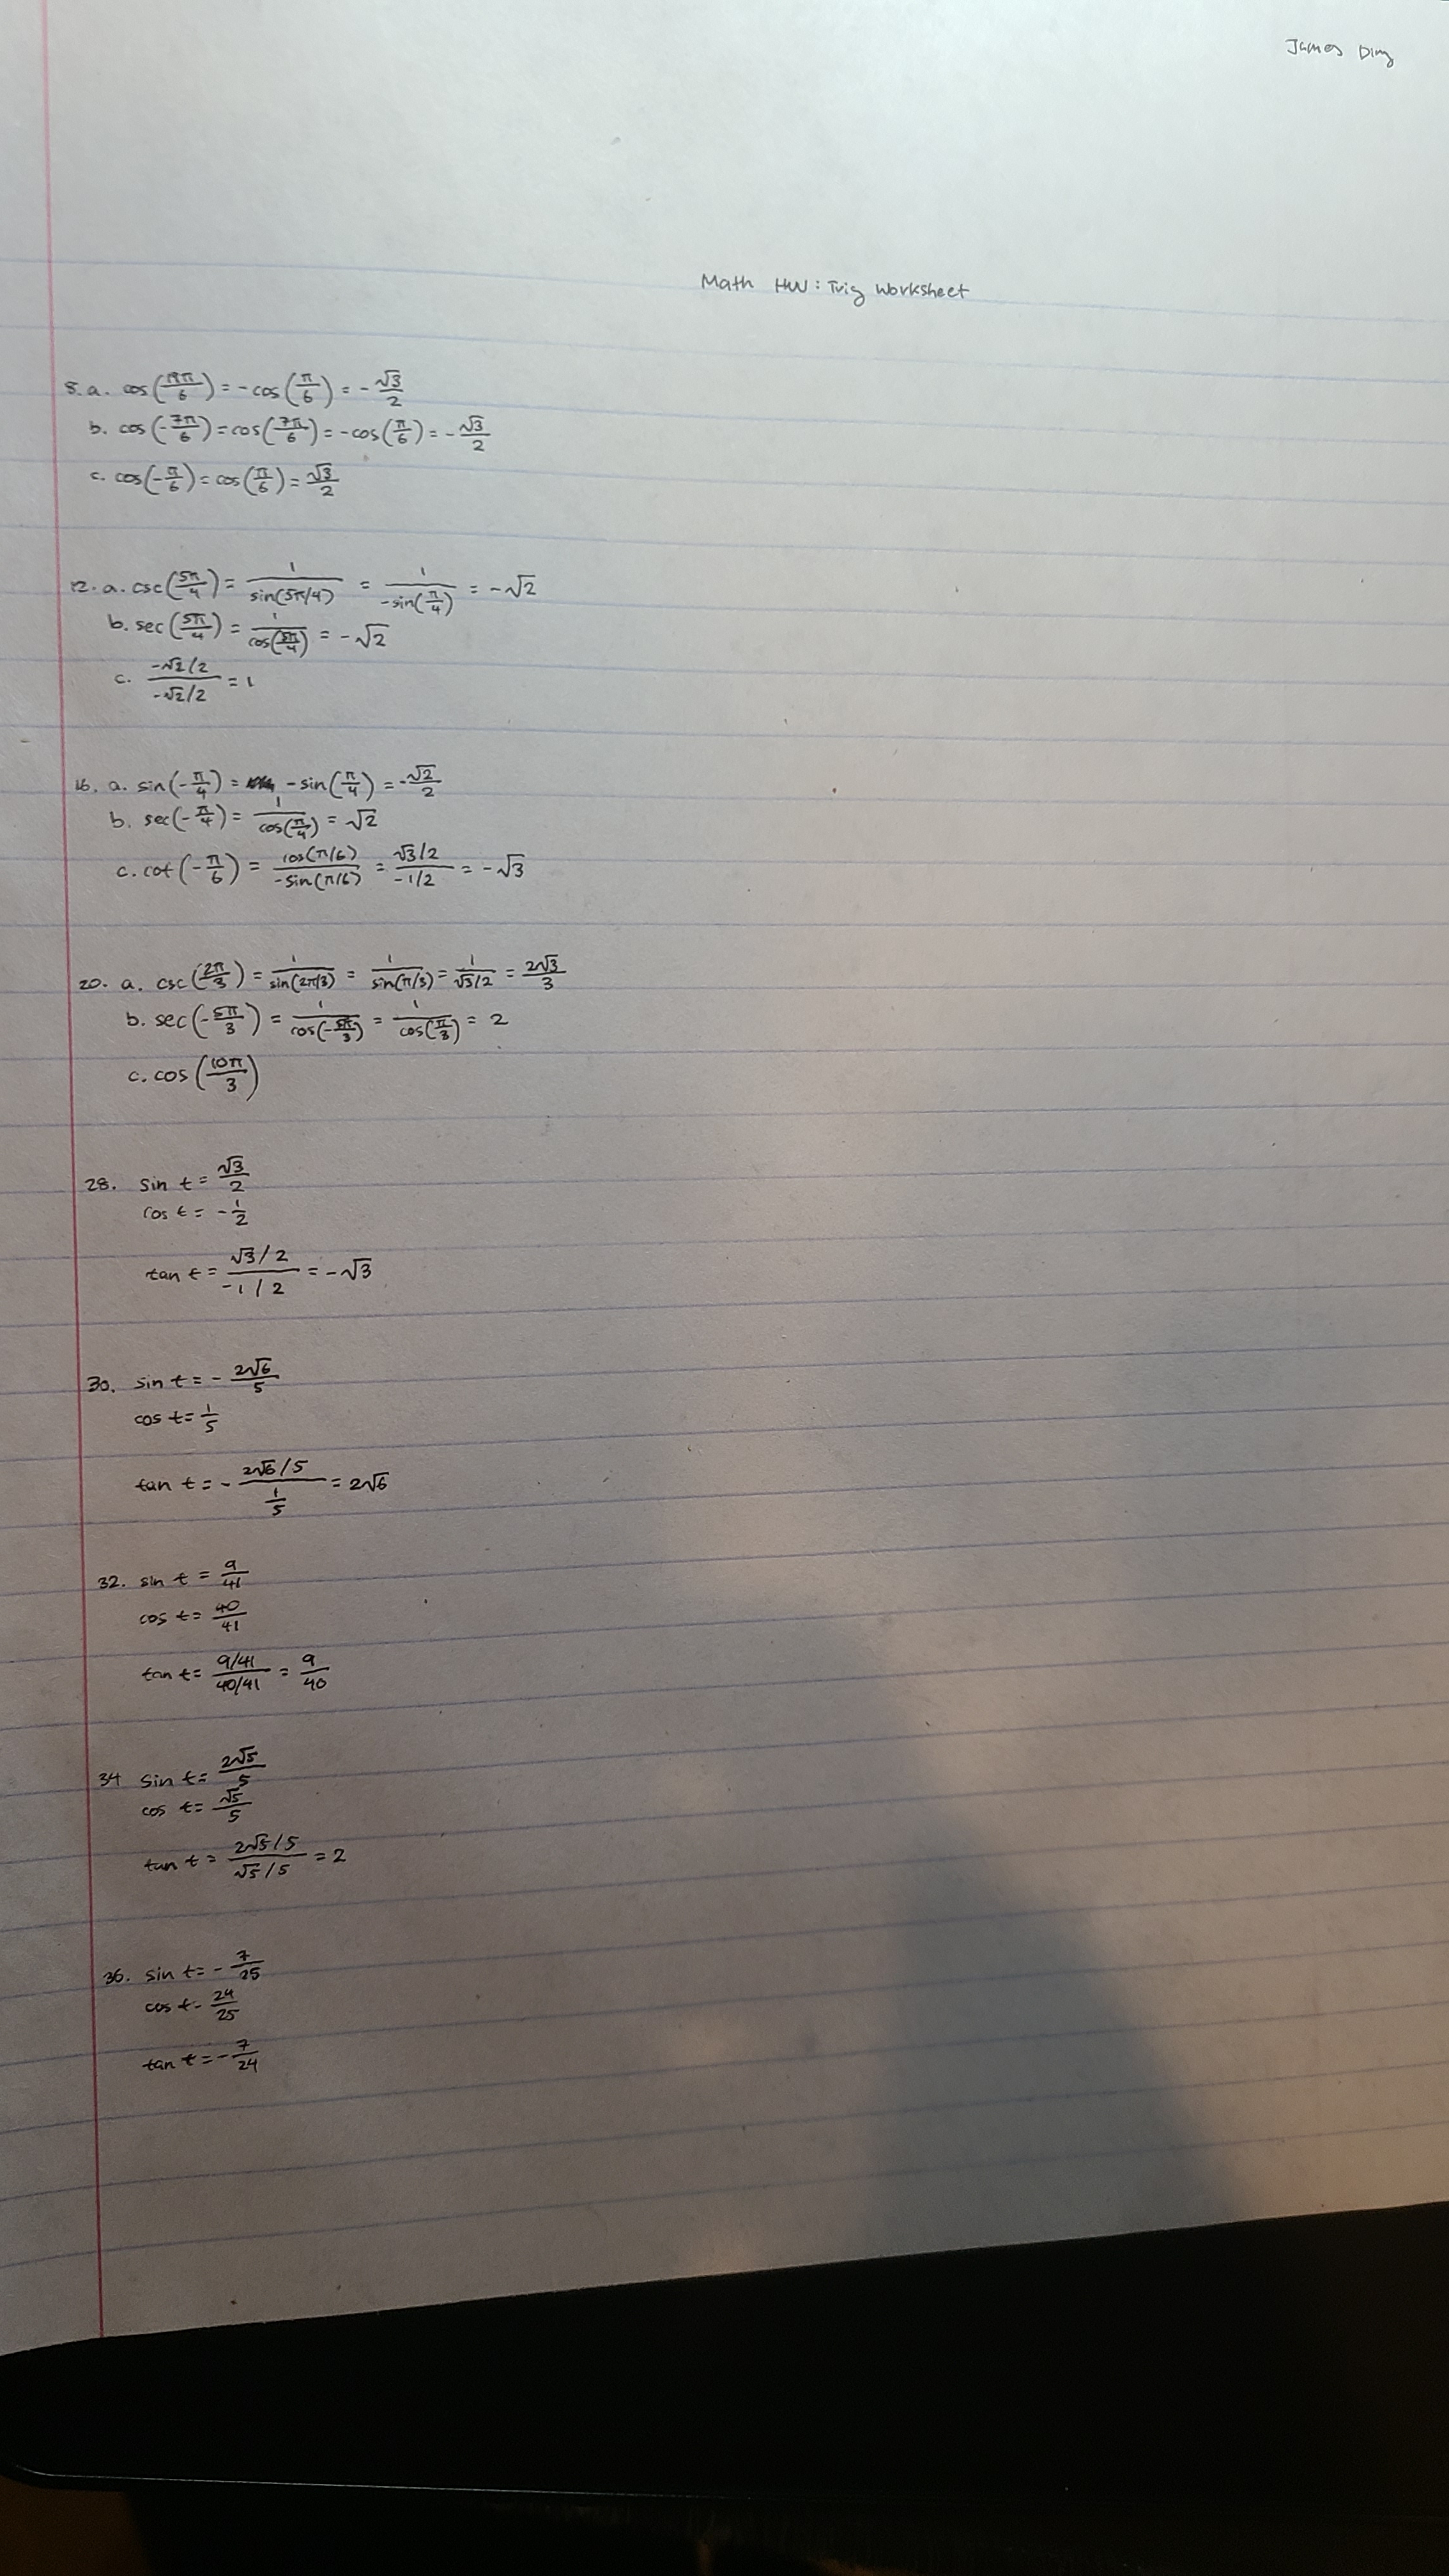 James Ding
Math HW: Trig Worksheet
8. a. cos(19π/6) = -cos(π/6) = -√3/2
b. cos(-7π/6) = cos(7π/6) = -cos(π/6) = -√3/2
c. cos(-π/6) = cos(π/6) = √3/2
12. a. csc(5π/4) = 1/sin(5π/4) = 1/-sin(π/4) = -√2
b. sec(5π/4) = 1/cos(5π/4) = -√2
c. (-√2/2)/(-√2/2) = 1
16. a. sin(-π/4) = -sin(π/4) = -√2/2
b. sec(-π/4) = 1/cos(π/4) = √2
c. cot(-π/6) = cos(π/6)/-sin(π/6) = (√3/2)/(-1/2) = -√3
20. a. csc(2π/3) = 1/sin(2π/3) = 1/sin(π/3) = 1/(√3/2) = 2√3/3
b. sec(-5π/3) = 1/cos(-5π/3) = 1/cos(π/3) = 2
c. cos(10π/3)
28. sin t = √3/2
cos t = -1/2
tan t = (√3/2)/(-1/2) = -√3
30. sin t = -2√6/5
cos t = 1/5
tan t = -(2√6/5)/(1/5) = 2√6
32. sin t = 9/41
cos t = 40/41
tan t = (9/41)/(40/41) = 9/40
34 sin t = 2√5/5
cos t = √5/5
tan t = (2√5/5)/(√5/5) = 2
36. sin t = -7/25
cos t - 24/25
tan t = -7/24